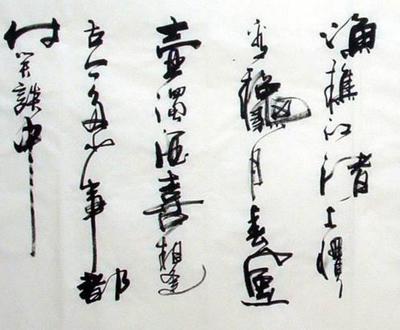 漁樵江渚上慣
看龝月春風
壺濁酒喜相逢
古今多少事都
付笑談中